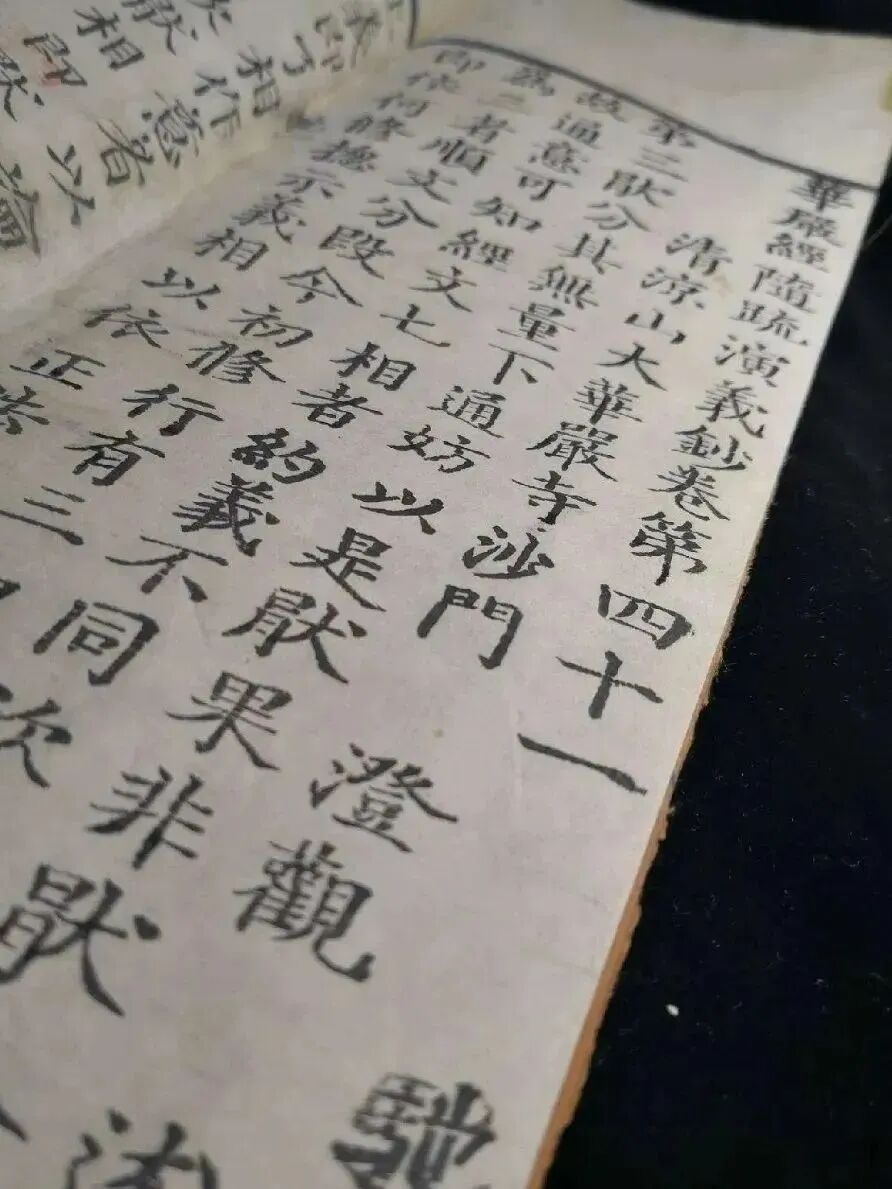 華嚴經隨疏演義鈔卷第四十一
清涼山大華嚴寺沙門 澄觀
第三猒分其無量下通妨以是猒果非猒
故通意可知經文七相者約義不同次
為二者順文分段今初修行有三
即依何修揔示義相以依正法
相作意者以論
猒相即猒